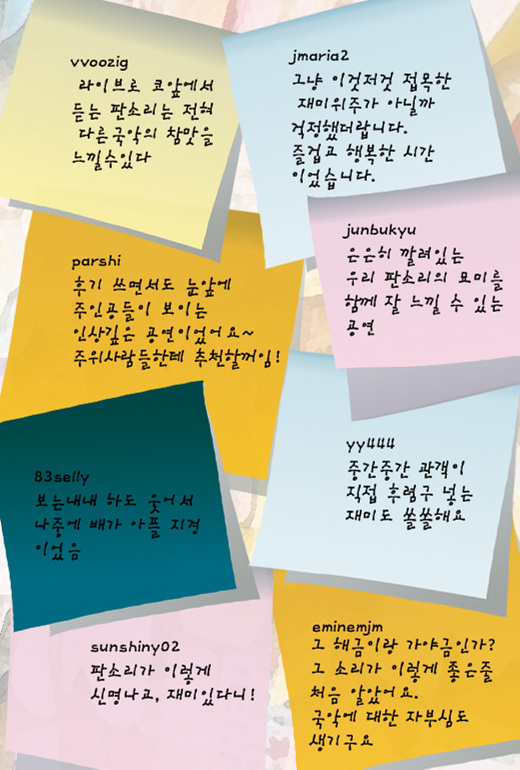 vvoozig
라이브로 코앞에서
듣는 판소리는 전혀
다른국악의 참맛을
느낄수있다
jmaria2
그냥 이것저것 접목한
재미위주가 아닐까
걱정했더랍니다.
즐겁고 행복한 시간
이었습니다.
junbukyu
은은히 깔려있는
우리 판소리의 묘미를
함께 잘 느낄 수 있는
공연
parshi
후기 쓰면서도 눈앞에
주인공들이 보이는
인상깊은 공연이었어요~
주위사람들한테 추천할꺼임!
yy444
중간중간 관객이
직접 후렴구 넣는
재미도 쏠쏠해요
83selly
보는내내 하도 웃어서
나중에 배가 아플 지경
이었음
sunshiny02
판소리가 이렇게
신명나고, 재미있다니!
eminemjm
그 해금이랑 가야금인가?
그 소리가 이렇게 좋은줄
처음 알았어요.
국악에 대한 자부심도
생기구요